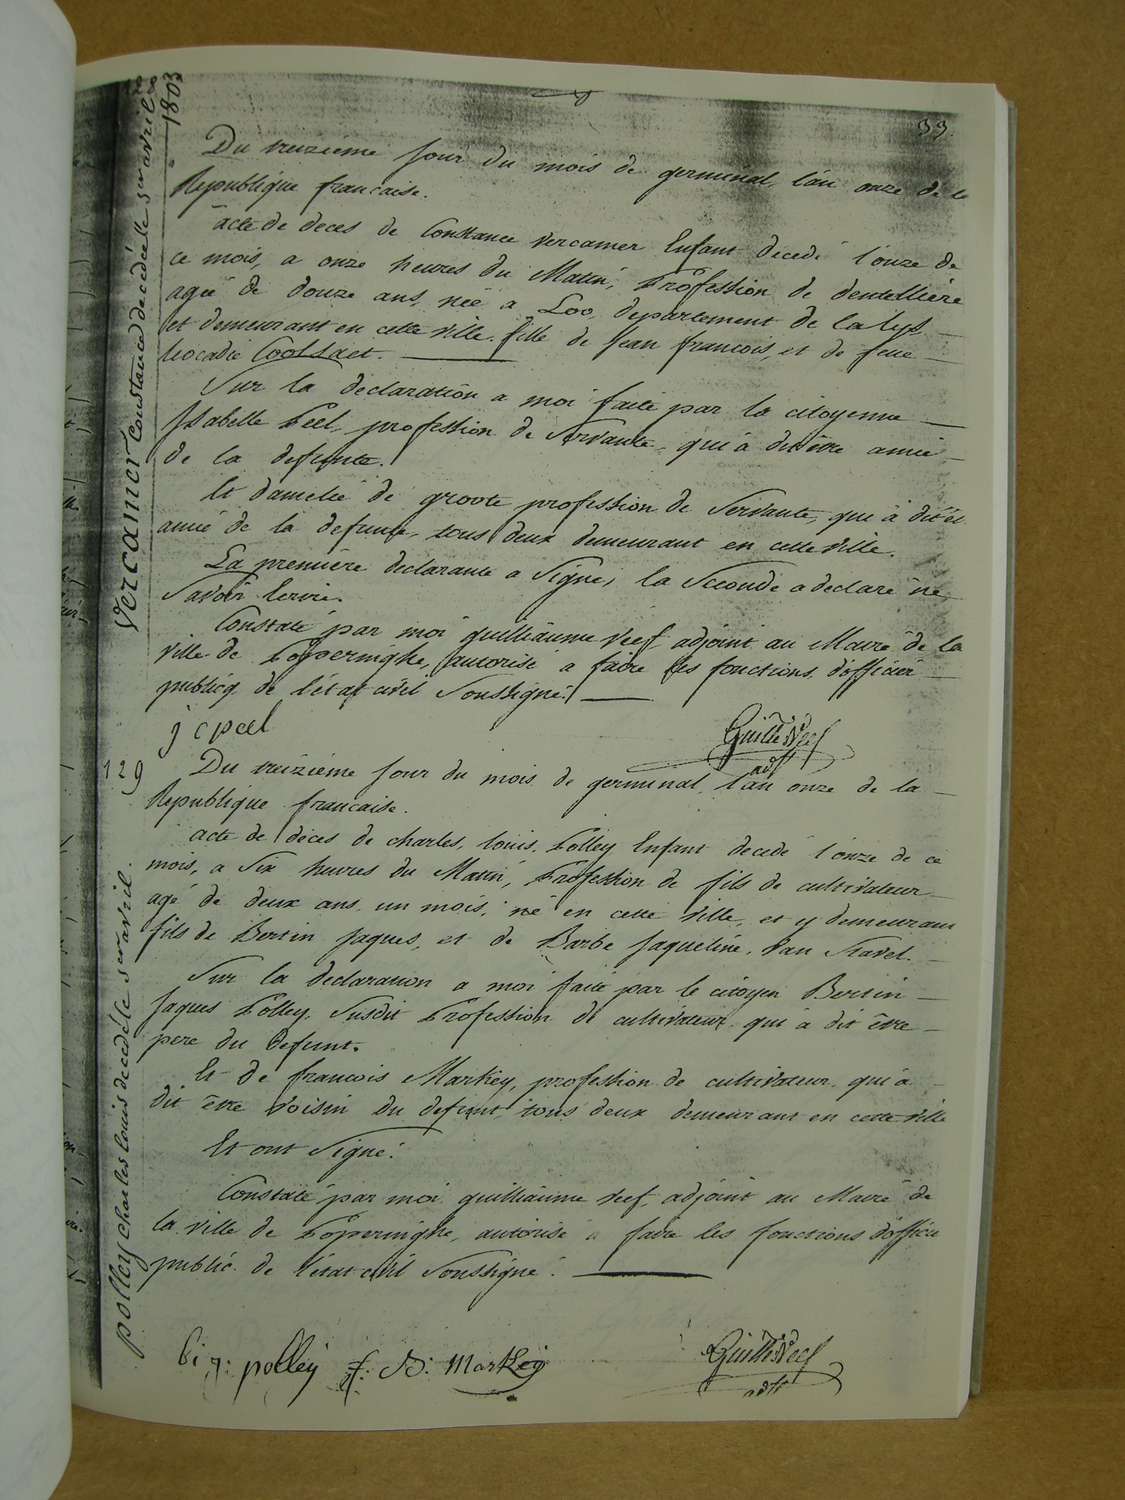 33
Vercamer Constance décédée le 1er avril 1803
Du treizième jour du mois de germinal, l'an onze de la
Republique francaise.
acte de deces de Constance Vercamer Enfant decedé l'onze de
ce mois, a onze heures du Matin, Profession de dentellière
ageé de douze ans, neé a Loo, departement de la Lys
et demeurant en cette ville. fille de Jean francois, et de feue
leocadie Coolsaet.
Sur la declaration a moi faite par la citoyenne
Isabelle Peel, profession de Servante, qui a dit être amie
de la defunte.
Et d'amelie de groote profession de Servante, qui a dit êt.
amie de la defunte, tous deux demeurant en cette ville.
La première declarante a Signé, la Seconde a declaré ne
Savoir Ecrire.
Constaté par moi guilliaume Neef adjoint au Maire de la
ville de Poperinghe, autorisé a faire les fonctions d'officier
publicq de l'état civil Soussigné.
j c peel
Guille Neef
adjt
129
polley Charles louis décédé le 1er avril.
Du treizième jour du mois de germinal, l'an onze de la
Republique francaise.
acte de deces de charles, louis, Polley Enfant decedé l'onze de ce
mois, a Six heures du Matin, Profession de fils de cultivateur
agé de deux ans un mois, né en cette ville, et y demeurant
fils de Bertin Jaques, et de Barbe Jaqueline, Van Stavel.
Sur la declaration a moi faite par le citoyen Bertin
Jaques Polley, Susdit Profession de cultivateur, qui a dit être
pere du defunt.
Et de francois Markey, profession de cultivateur, qui a
dit être voisin du defunt tous deux demeurant en cette ville
Et ont Signé.
Constaté par moi guilliaume Neef, adjoint au Maire de
la ville de Poperinghe, autorisé a faire les fonctions d'officier
public de l'état civil Soussigné.
b: j: polley f: B: Markey
Guille Neef
adjt